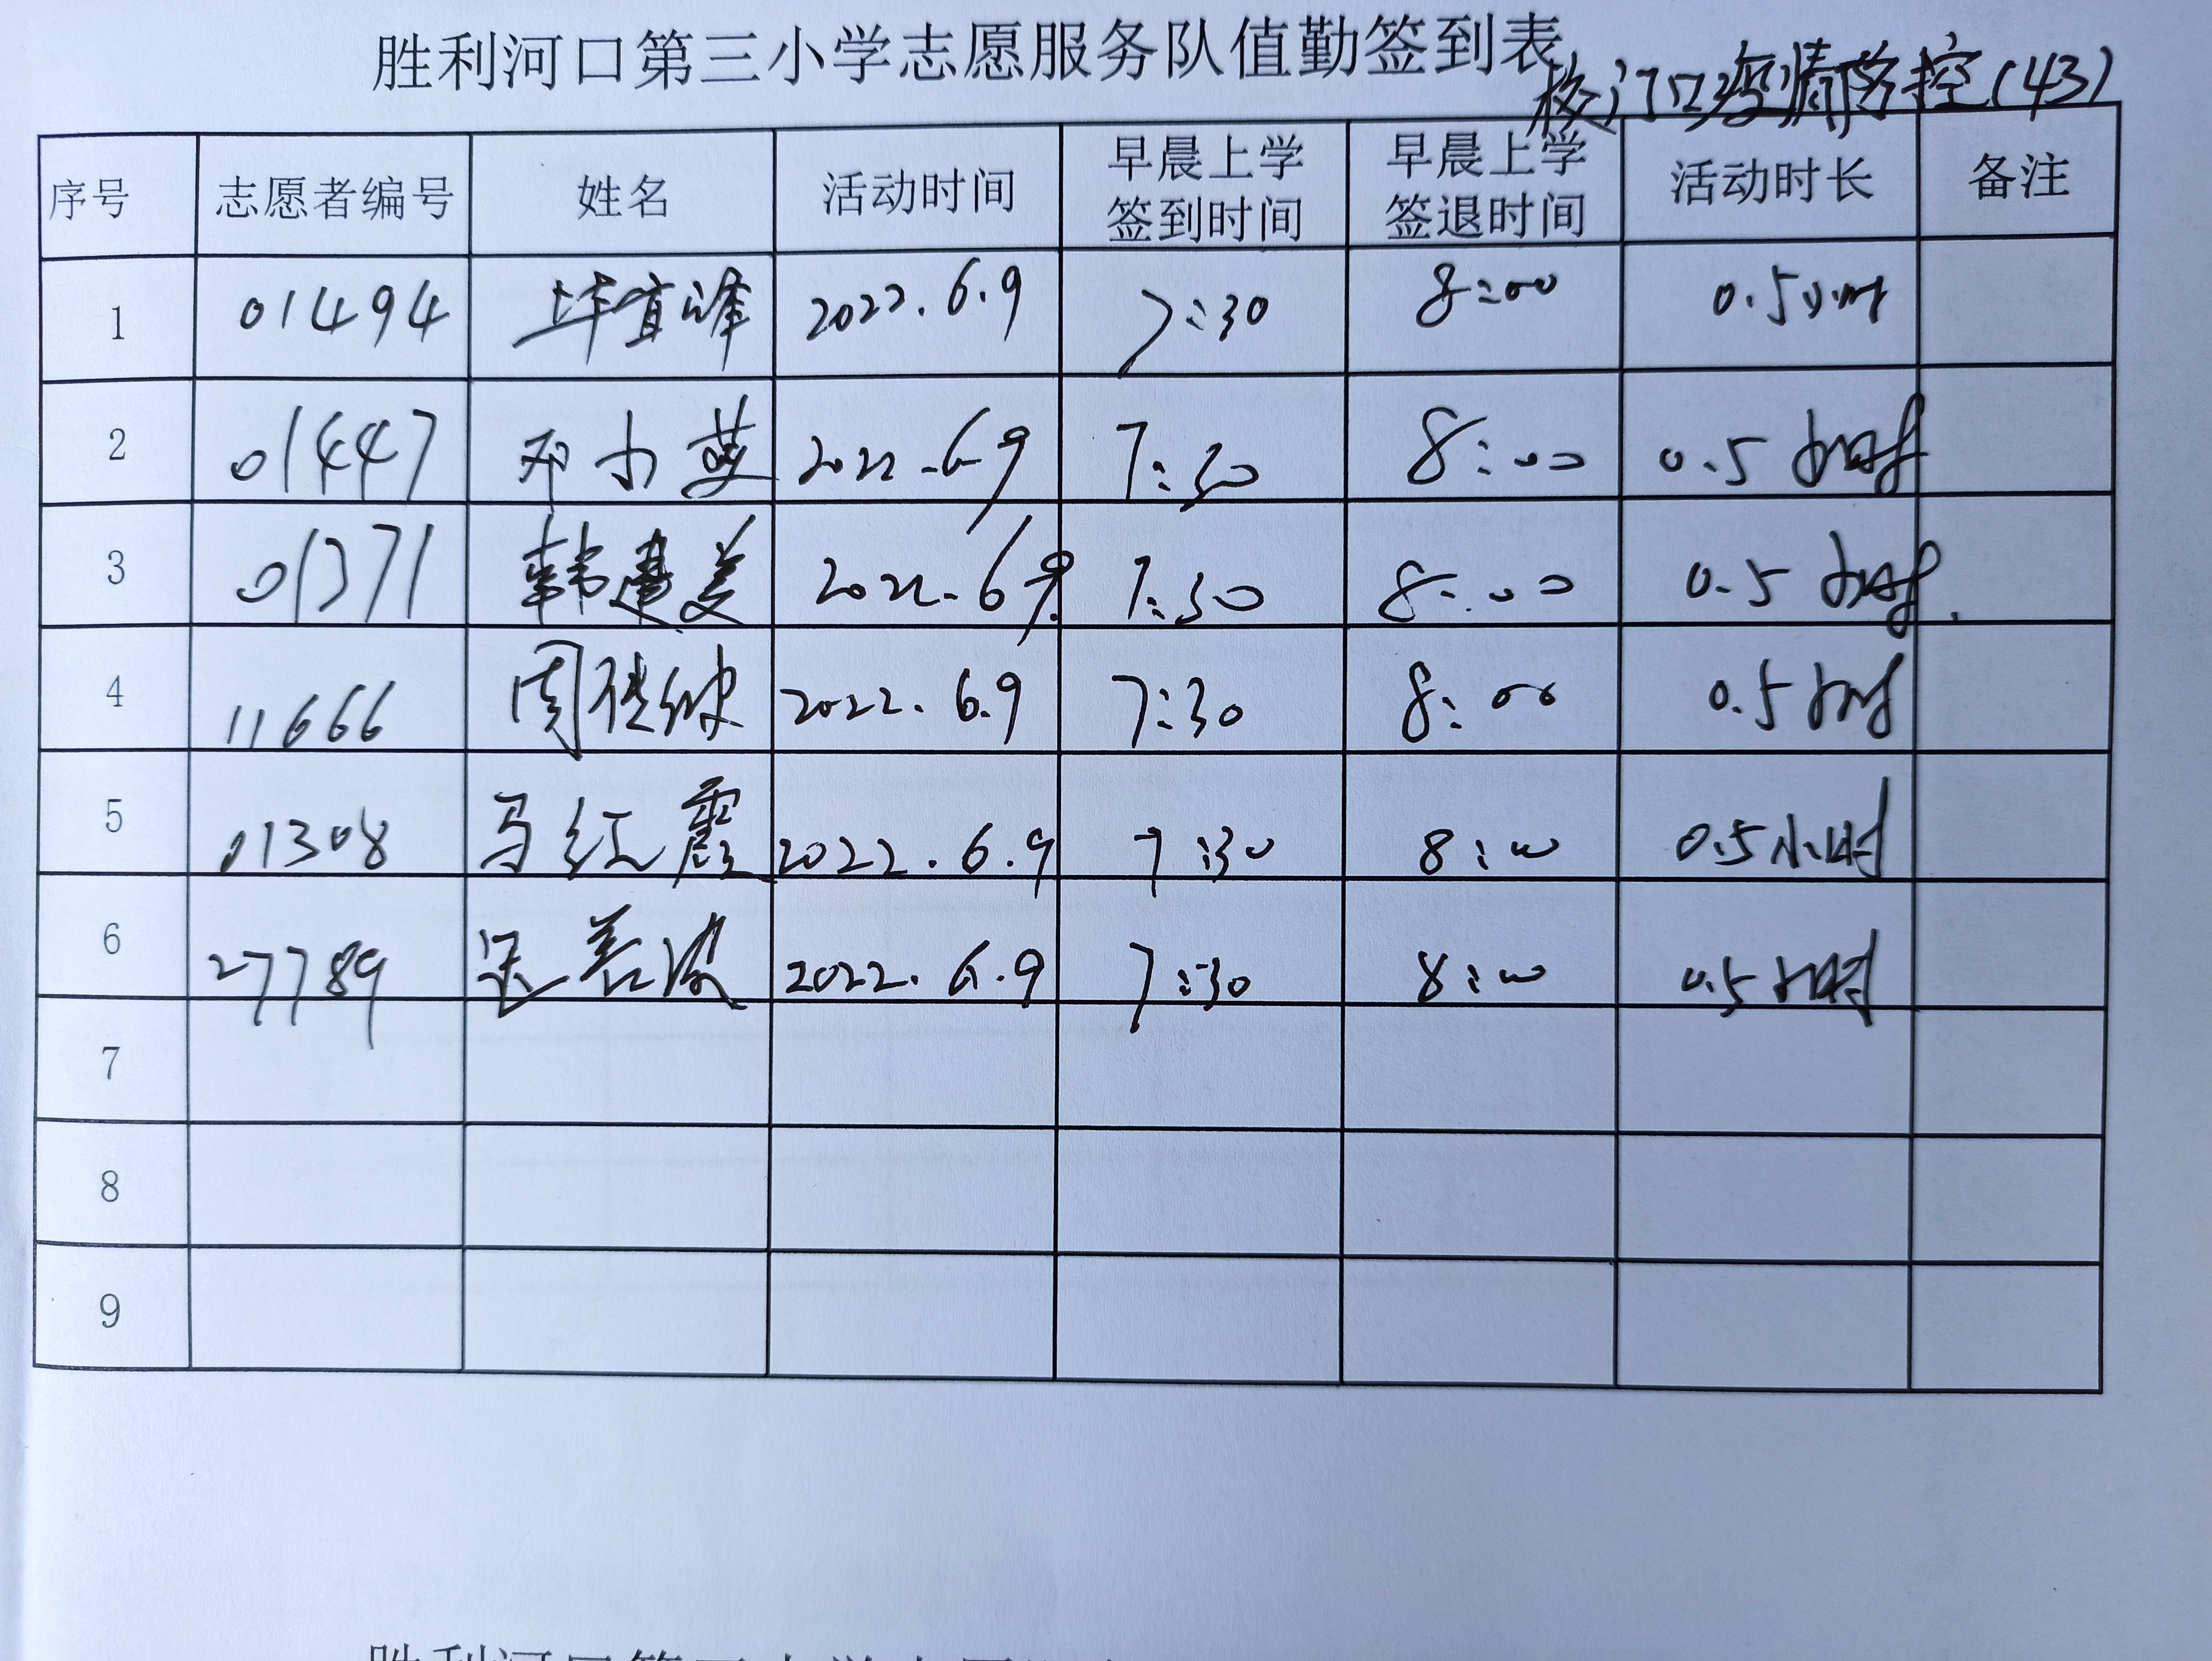 胜利河口第三小学志愿服务队值勤签到表
校门口疫情防控(43)
序号 志愿者编号 姓名 活动时间 早晨上学签到时间 早晨上学签退时间 活动时长 备注
1 01494 毕宜峰 2022.6.9 7:30 8:00 0.5小时
2 01447 邓小英 2022.6.9 7:30 8:00 0.5小时
3 01371 韩建美 2022.6.9. 7:30 8:00 0.5小时.
4 11666 周 2022.6.9 7:30 8:00 0.5小时
5 01308 马红霞 2022.6.9 7:30 8:00 0.5小时
6 27789 2022.6.9 7:30 8:00 0.5小时
7
8
9